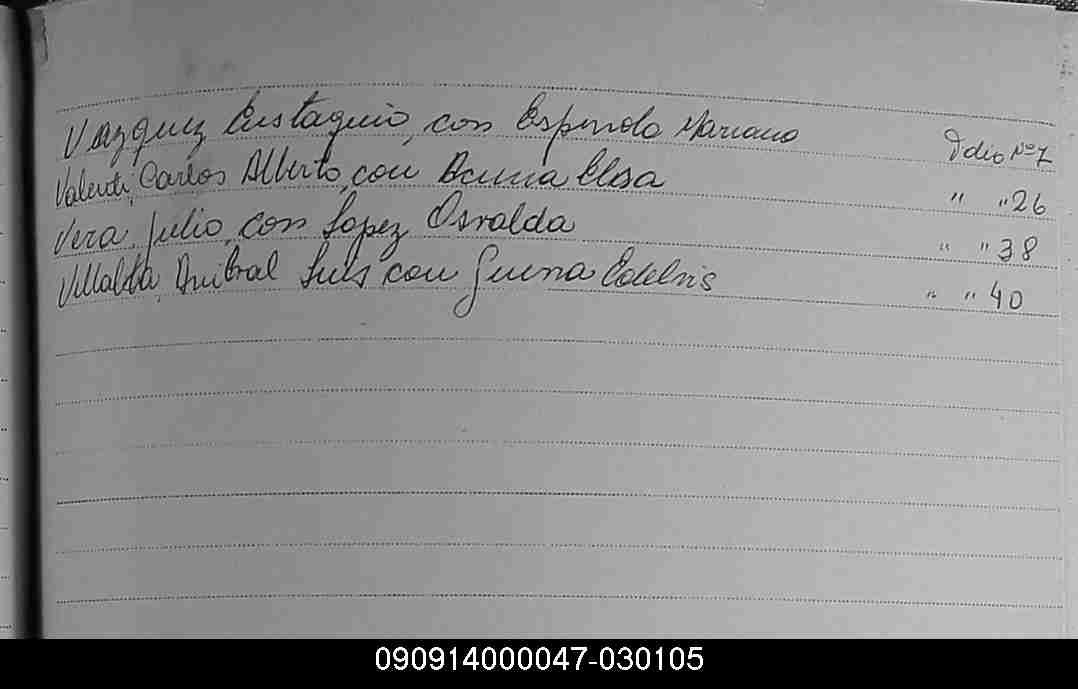 Vazquez Eustaquio, con Espindola Mariana Folio Nº 7
Valenti, Carlos Alberto, con Acuña Elisa " " 26
Vera Julio, con Lopez Osvalda " " 38
Villalta, Anibal Luis con Edelvis " " 40
090914000047-030105